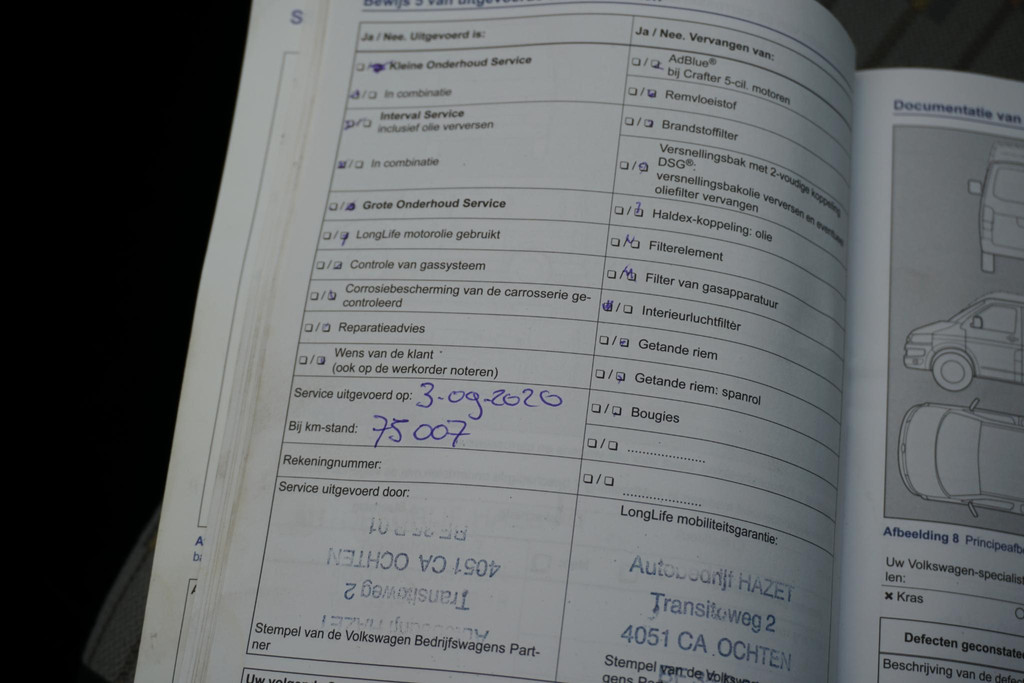 S
Bewijs 5 van uitgevoerde
Ja / Nee. Uitgevoerd is:
Kleine Onderhoud Service
In combinatie
Interval Service
inclusief olie verversen
In combinatie
Grote Onderhoud Service
LongLife motorolie gebruikt
Controle van gassysteem
Corrosiebescherming van de carrosserie ge-
controleerd
Reparatieadvies
Wens van de klant
(ook op de werkorder noteren)
Service uitgevoerd op: 3-09-2020
Bij km-stand: 75007
Rekeningnummer:
Service uitgevoerd door:
4051 CA OCHTEN
Transitoweg 2
Autobedrijf HAZET
Stempel van de Volkswagen Bedrijfswagens Part-
ner
Ja / Nee. Vervangen van:
AdBlue®
bij Crafter 5-cil. motoren
Remvloeistof
Brandstoffilter
Versnellingsbak met 2-voudige koppeling
DSG®:
versnellingsbakolie verversen en eventueel
oliefilter vervangen
Haldex-koppeling: olie
Filterelement
Filter van gasapparatuur
Interieurluchtfilter
Getande riem
Getande riem: spanrol
Bougies
LongLife mobiliteitsgarantie:
Autobedrijf HAZET
Transitoweg 2
4051 CA OCHTEN
Stempel van de Volkswa
gens Pa
Documentatie van
Afbeelding 8 Principeafbe
Uw Volkswagen-specialis
len:
× Kras
Defecten geconstate
Beschrijving van de defe